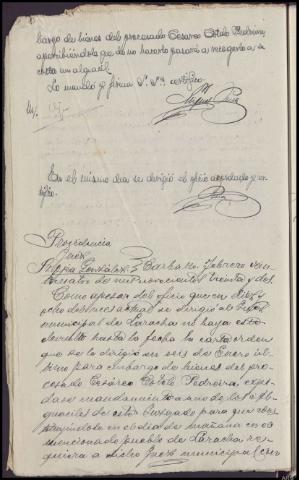 bargo de bienes del procesado Cesareo Cotelo Pedreira,
apercibiendole que de no hacerlo pasará a recogerla a su
costa un alguacil.
Lo mandó y firma S. Sª, certifico
En el mismo dia se dirigió el oficio acordado, cer-
tifico.
Providencia
Juez
González. Carballo, Febrero vein-
de mil novecientos treinta y dos.
Como apesar del oficio que en diez y
ocho del mes actual se dirigió al Juzgado
municipal de Laracha no haya este
devuelto hasta la fecha la carta orden
que se le dirigió en seis de Enero úl-
timo para embargo de bienes del pro-
cesado Cesáreo Cotelo Pedreira, expi-
dase mandamiento a uno de los al-
guaciles de este Juzgado para que cons-
tituyéndose en el dia de mañana en el
mencionado pueblo de Laracha re-
quiera a dicho Juez municipal